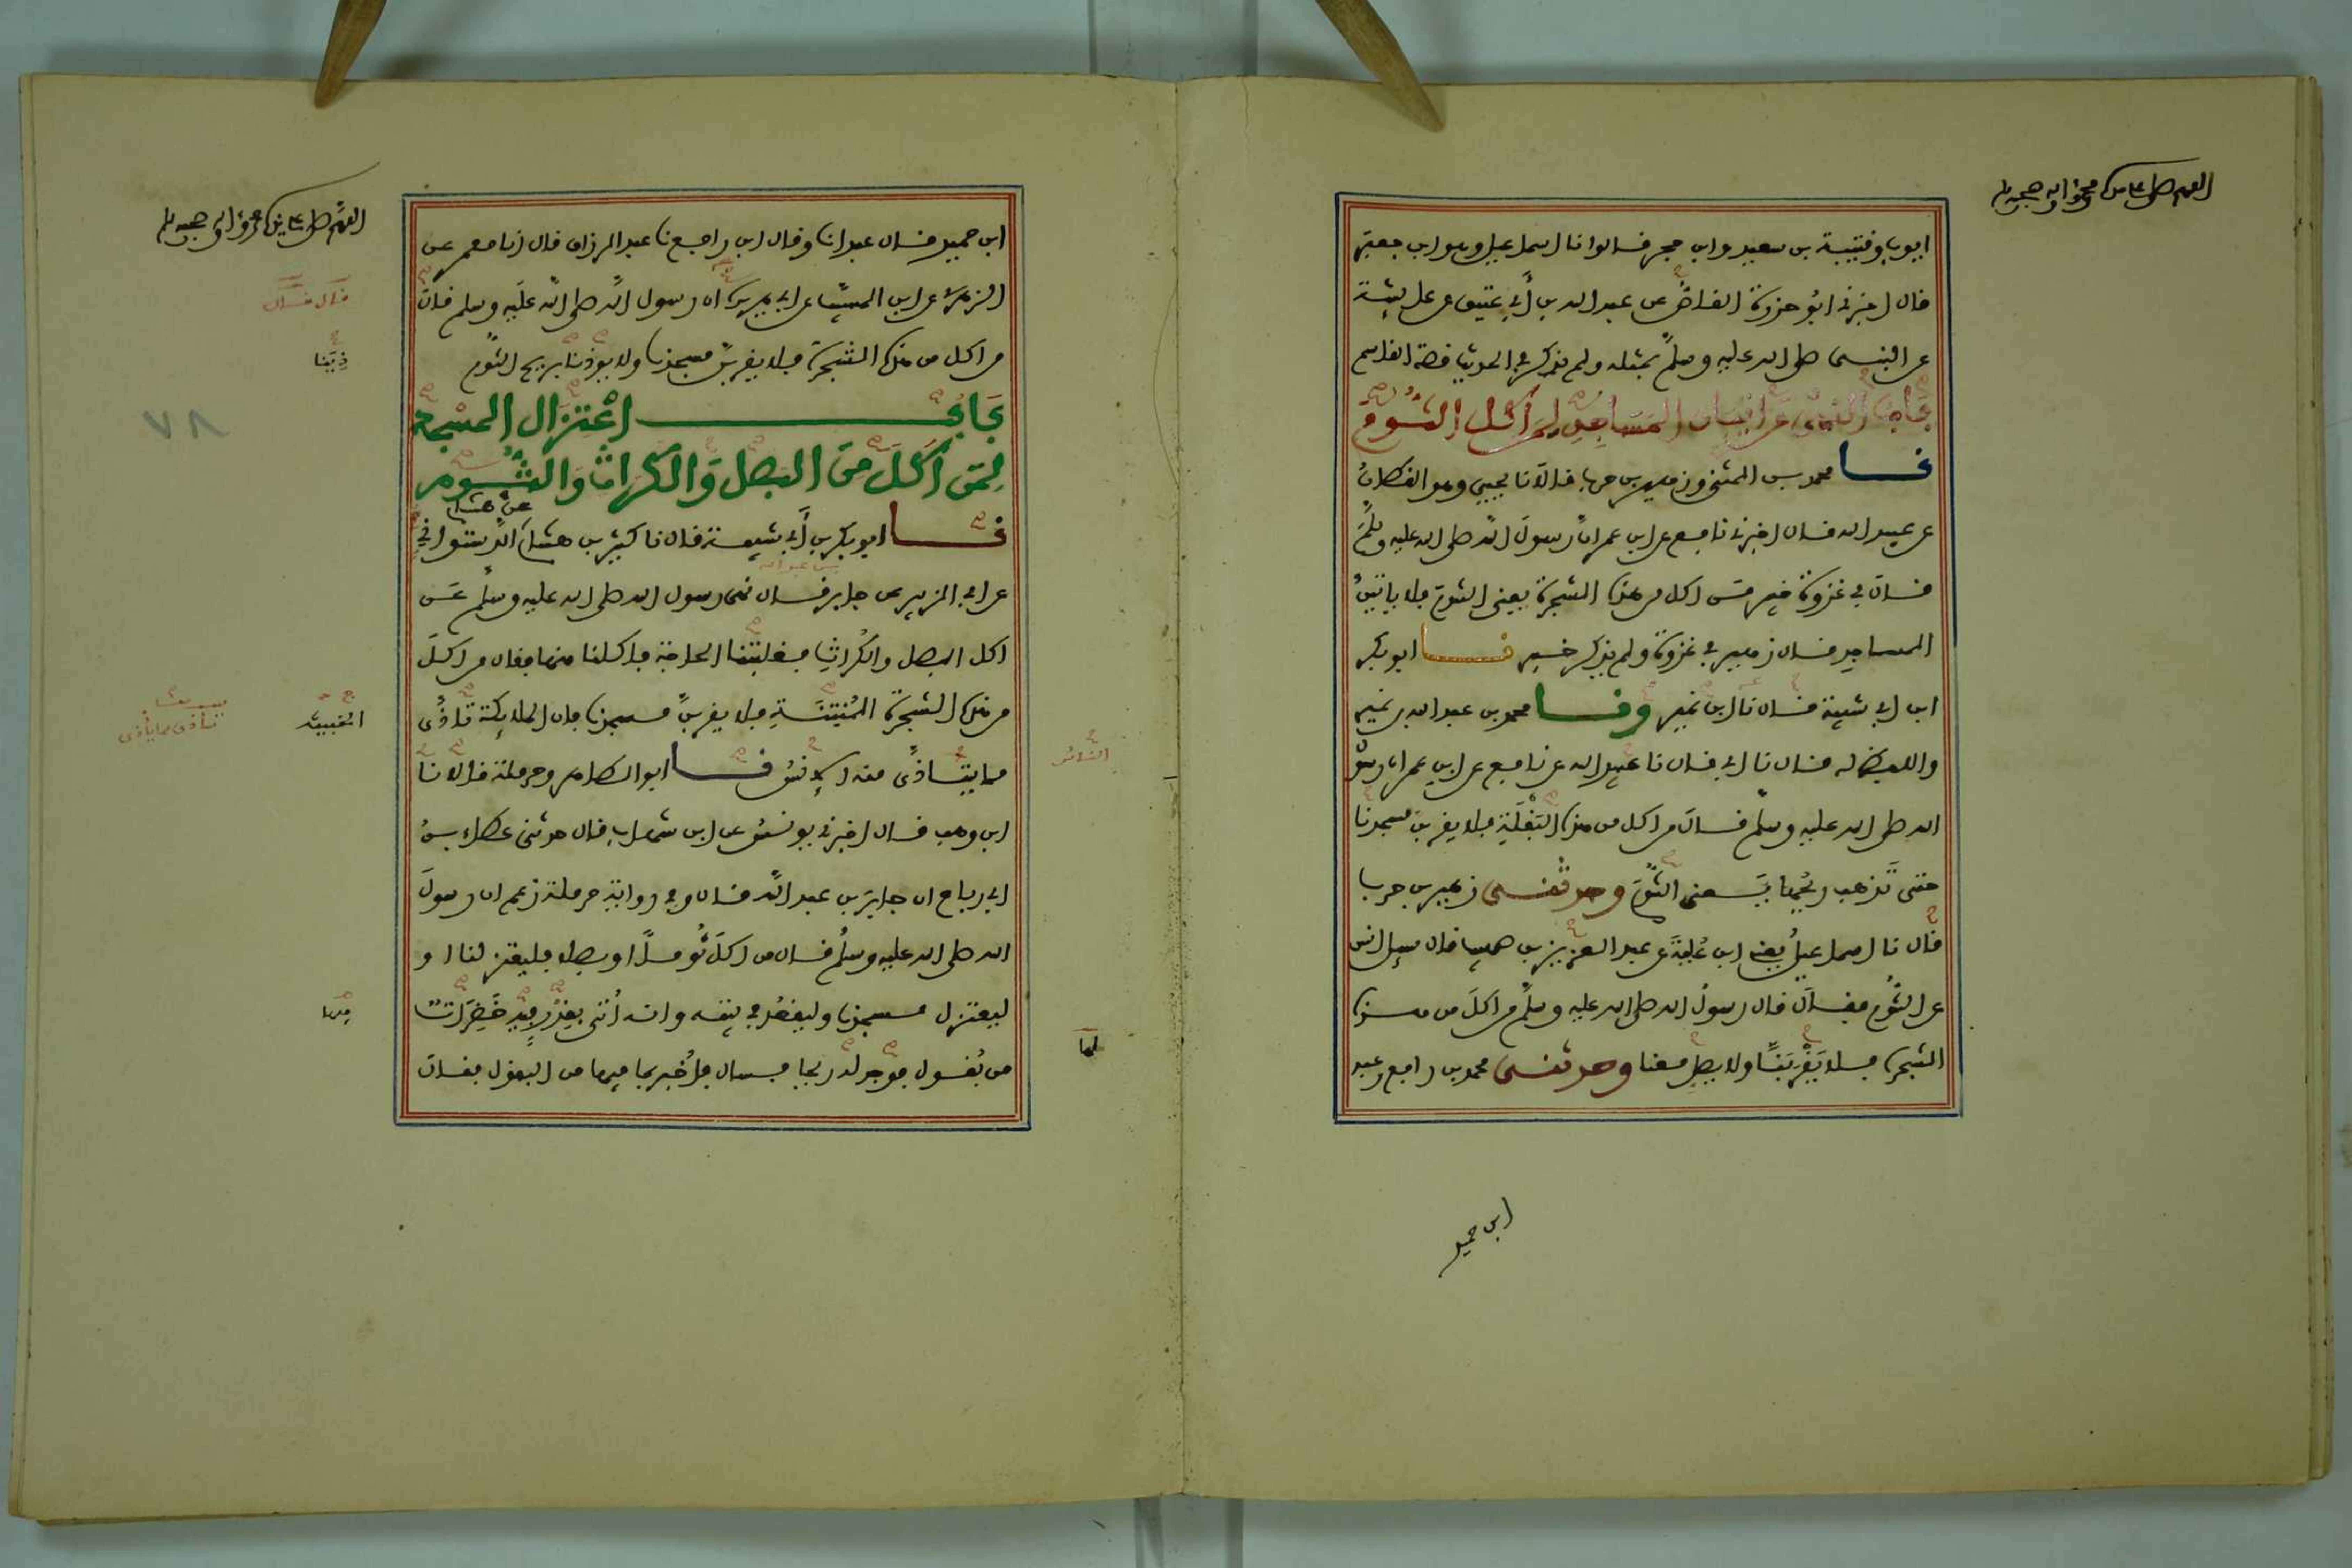 اللهم صل على سيدنا محمد وآله وصحبه وسلم
ايوب وقتيبة بن سعيد وابن حجر قالوا نا اسماعيل وهو ابن جعفر
قال اخبرني ابو حزرة القاص عن عبد الله بن أبي عتيق عن عايشة
عن النبي صلى الله عليه وسلم بمثله ولم يذكر في الحديث قصة القاسم
باب النهي عن اتيان المساجد لمن أكل الثوم
نا محمد بن المثنى وزهير بن حرب قالا نا يحيى وهو القطان
عن عبيد الله قال اخبرني نافع عن ابن عمر ان رسول الله صلى الله عليه وسلم
قال في غزوة خيبر من اكل من هذه الشجرة يعني الثوم فلا ياتين
المساجد قال زهير في غزوة ولم يذكر خيبر نا ابو بكر
ابن ابي شيبة قال نا ابن نمير ونا محمد بن عبد الله بن نمير
واللفظ له قال نا ابي قال نا عبيد الله عن نافع عن ابن عمر ان رسول
الله صلى الله عليه وسلم قال من اكل من هذه البقلة فلا يقربن مسجدنا
حتى تذهب ريحها يعني الثوم وحدثني زهير بن حرب
قال نا اسماعيل يعني ابن علية عن عبد العزيز بن صهيب قال سيل انس
عن الثوم فقال قال رسول الله صلى الله عليه وسلم من اكل من هذه
الشجرة فلا يقربنا ولا يصل معنا وحدثني محمد بن رافع وعبد
ابن حميد
اللهم صل على سيدنا محمد وآله وصحبه وسلم
ابن حميد قال عبد انا وقال ابن رافع نا عبد الرزاق قال انا معمر عن
الزهري عن ابن المسيب عن ابي هريرة ان رسول الله صلى الله عليه وسلم قال
قال قال
من اكل من هذه الشجرة فلا يقربن مسجدنا ولا يوذنا بريح الثوم
ذينا
باب اعتزال المسجد
٧٨
لمن أكل من البصل والكراث والثوم
عن هشام
نا ابو بكر بن أبي شيبة قال نا كثير بن هشام الدستواني
بن عبد الله
عن ابي الزبير عن جابر قال نهى رسول الله صلى الله عليه وسلم عن
اكل البصل والكراث فغلبتنا الحاجة فاكلنا منها فقال من اكل
من هذه الشجرة المنتنة فلا يقربن مسجدنا فان الملايكة تأذى
الخبيثة
تأذى مما يأذى
مما يتأذى منه الإنس نا ابو الطاهر وحرملة قالا نا
الناس
ابن وهب قال اخبرني يونس عن ابن شهاب قال حدثني عطاء بن
ابي رباح ان جابر بن عبد الله قال وفي رواية حرملة زعم ان رسول
الله صلى الله عليه وسلم قال من اكل ثوما او بصلا فليعتزلنا او
ليعتزل مسجدنا وليقعد في بيته وانه أتي بقدر فيه خضرات
فيها
لها
من بقول فوجد لها ريحا فسال فأخبر بما فيها من البقول فقال